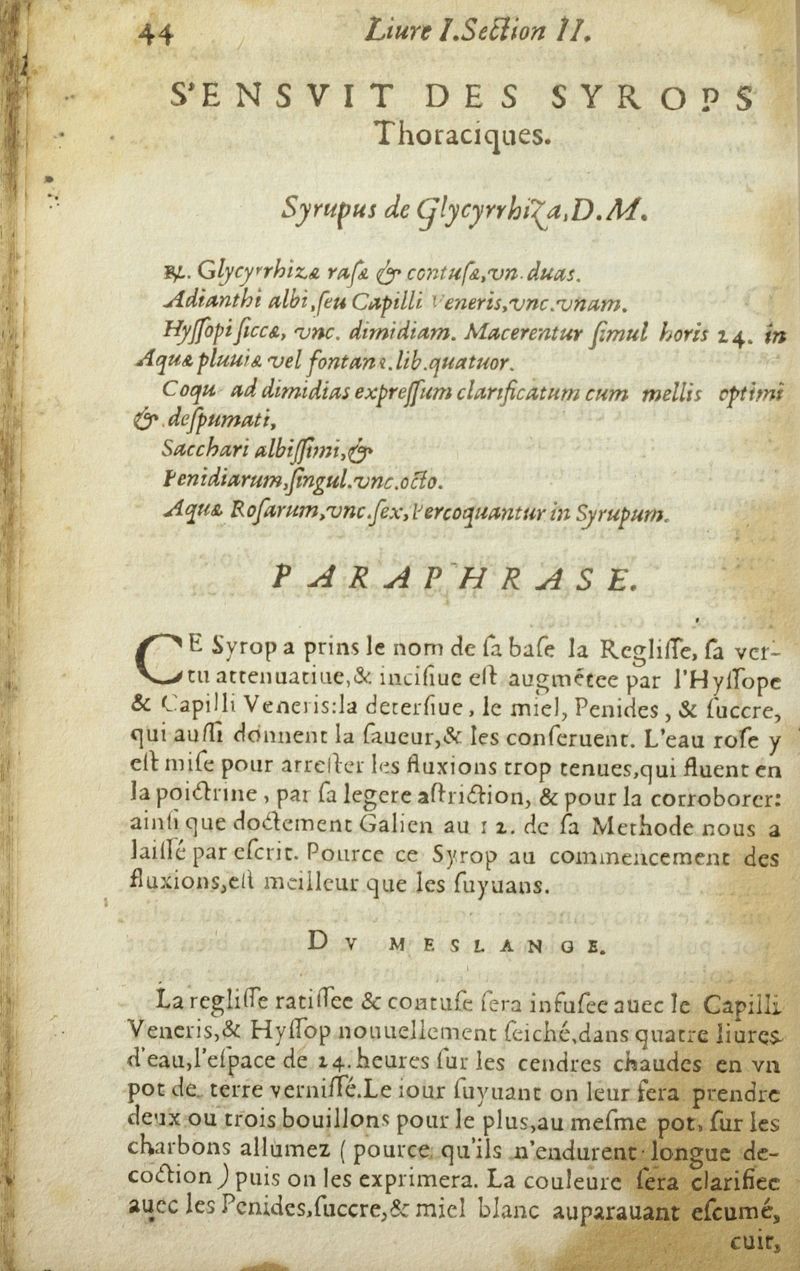 44 Liure I.Section II.
S'ENSVIT DES SYROPS
Thoraciques.
Syrupus de Glycyrrhiza,D.M.
℞. Glycyrrhizæ raſæ & contuſæ,vn.duas.
Adianthi albi,ſeu Capilli Veneris,vnc.vnam.
Hyſſopi ſiccæ, vnc. dimidiam. Macerentur ſimul horis 24. in
Aquæ pluuiæ vel fontanæ.lib.quatuor.
Coqu ad dimidias expreſſum clarificatum cum mellis optimi
&.deſpumati,
Sacchari albiſſimi,&
Penidiarum,ſingul.vnc.octo.
Aquæ Roſarum,vnc.ſex,Percoquantur in Syrupum.
PARAPHRASE.
CE Syrop a prins le nom de ſa baſe la Regliſſe, ſa ver-
tu attenuatiue,& inciſiue eſt augmẽtee par l'Hyſſope
& Capilli Veneris:la deterſiue, le miel, Penides, & ſuccre,
qui auſſi donnent la ſaueur,& les conſeruent. L'eau roſe y
eſt miſe pour arreſter les fluxions trop tenues,qui fluent en
la poictrine, par ſa legere aſtriction, & pour la corroborer:
ainſi que doctement Galien au 12. de ſa Methode nous a
laiſſé par eſcrit. Pource ce Syrop au commencement des
fluxions,eſt meilleur que les ſuyuans.
DV MESLANGE.
La regliſſe ratiſſee & contuſe ſera infuſee auec le Capilli
Veneris,& Hyſſop nouuellement ſeiché,dans quatre liures
d'eau,l'eſpace de 24.heures ſur les cendres chaudes en vn
pot de terre verniſſé.Le iour ſuyuant on leur fera prendre
deux ou trois bouillons pour le plus,au meſme pot, ſur les
charbons allumez ( pource qu'ils n'endurent longue de-
coction ) puis on les exprimera. La couleure ſera clarifiee
auec les Penides,ſuccre,& miel blanc auparauant eſcumé,
cuit,